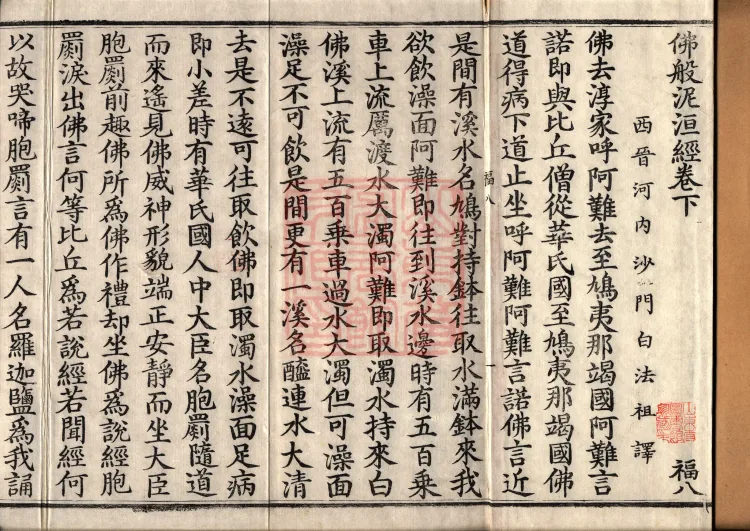 佛般泥洹經卷下 福八
西晉河內沙門白法祖譯
佛去淳家呼阿難去至鳩夷那竭國阿難言
諾即與比丘僧從華氏國至鳩夷那竭國佛
道得病下道止坐呼阿難阿難言諾佛言近
是間有溪水名鳩對持鉢往取水滿鉢來我
欲飲澡面阿難即往到溪水邊時有五百乘
車上流厲渡水大濁阿難即取濁水持來白
佛溪上流有五百乘車過水大濁但可澡面
澡足不可飲是間更有一溪名醯連水大清
去是不遠可往取飲佛即取濁水澡面足病
即小差時有華氏國人中大臣名胞罽隨道
而來遙見佛威神形貌端正安靜而坐大臣
胞罽前趣佛所為佛作禮却坐佛為說經胞
罽淚出佛言何等比丘為若說經若聞經何
以故哭啼胞罽言有一人名羅迦鹽為我誦
福八